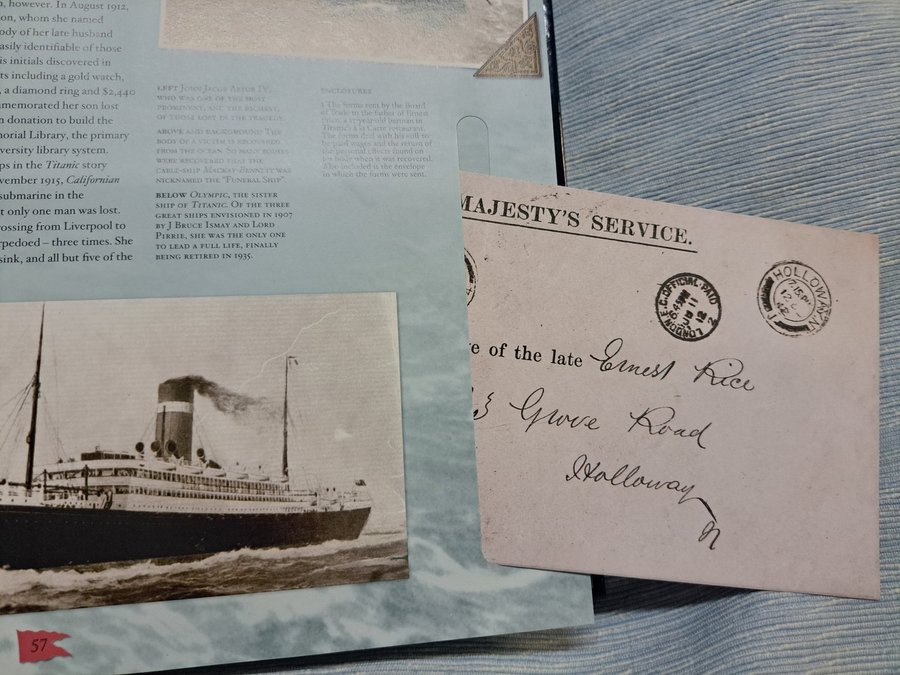 however. In August 1912,
on, whom she named
ody of her late husband
asily identifiable of those
is initials discovered in
ts including a gold watch,
, a diamond ring and $2,440
memorated her son lost
n donation to build the
morial Library, the primary
versity library system.
ps in the Titanic story
vember 1915, Californian
submarine in the
t only one man was lost.
rossing from Liverpool to
rpedoed – three times. She
sink, and all but five of the
LEFT JOHN JACOB ASTOR IV,
WHO WAS ONE OF THE MOST
PROMINENT, AND THE RICHEST,
OF THOSE LOST IN THE TRAGEDY.
ABOVE AND BACKGROUND THE
BODY OF A VICTIM IS RECOVERED
FROM THE OCEAN. SO MANY BODIES
WERE RECOVERED THAT THE
CABLE-SHIP MACKAY-BENNETT WAS
NICKNAMED THE "FUNERAL SHIP".
BELOW OLYMPIC, THE SISTER
SHIP OF TITANIC. OF THE THREE
GREAT SHIPS ENVISIONED IN 1907
BY J BRUCE ISMAY AND LORD
PIRRIE, SHE WAS THE ONLY ONE
TO LEAD A FULL LIFE, FINALLY
BEING RETIRED IN 1935.
ENCLOSURES
The forms sent by the Board
of Trade to the father of Ernest
Price, a 17-year-old barman in
Titanic's à la Carte restaurant.
The forms deal with his will to
be paid wages and the return of
his personal effects found on
his body when it was recovered.
Also included is the envelope
in which the forms were sent.
MAJESTY'S SERVICE.
LONDON E.C. OFFICIAL PAID
6.45PM
11
12
2
HOLLOWAY.N
7.15PM
12
e of the late Ernest Price
3 Grove Road
Holloway
N
57